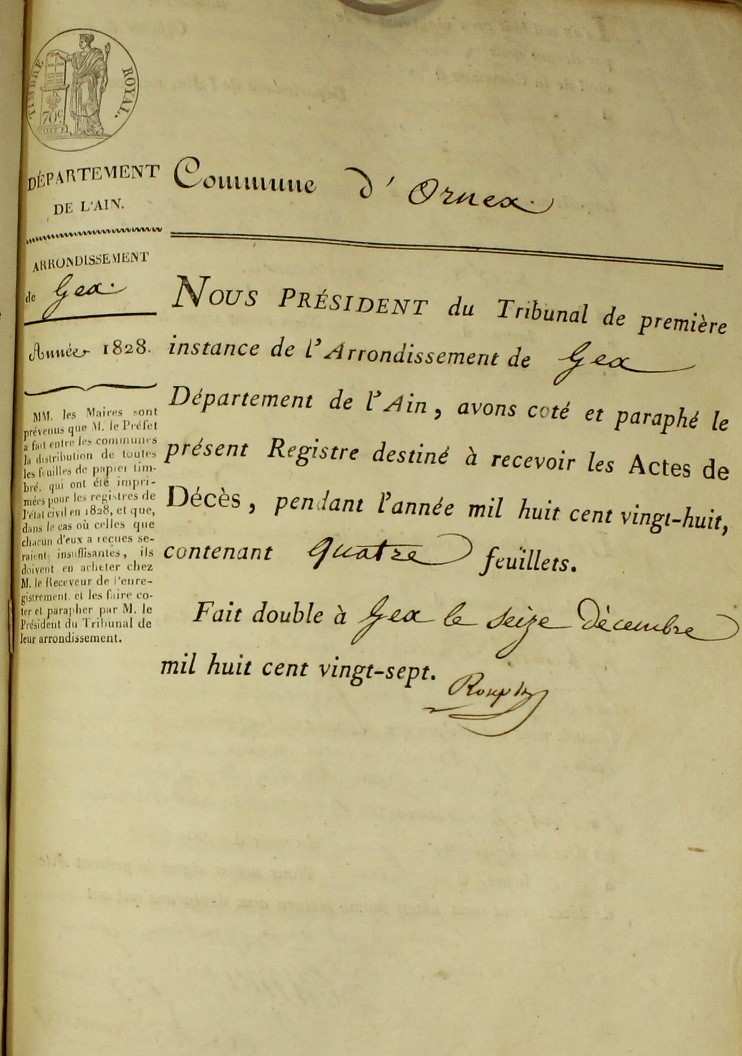 TIMBRE ROYAL.
70 c
DÉPARTEMENT
DE L'AIN.
ARRONDISSEMENT
de Gex.
Année 1828.
MM. les Maires sont
prévenus que M. le Préfet
a fait entre les communes
la distribution de toutes
les feuilles de papier tim-
bré, qui ont été impri-
mées pour les registres de
l'état civil en 1828, et que,
dans le cas où celles que
chacun d'eux a reçues se-
raient insuffisantes, ils
doivent en acheter chez
M. le Receveur de l'enre-
gistrement, et les faire co-
ter et parapher par M. le
Président du Tribunal de
leur arrondissement.
Commune d'Ornex.
NOUS PRÉSIDENT du Tribunal de première
instance de l'Arrondissement de Gex
Département de l'Ain, avons coté et paraphé le
présent Registre destiné à recevoir les Actes de
Décès, pendant l'année mil huit cent vingt-huit,
contenant quatre feuillets.
Fait double à Gex le seize décembre
mil huit cent vingt-sept.